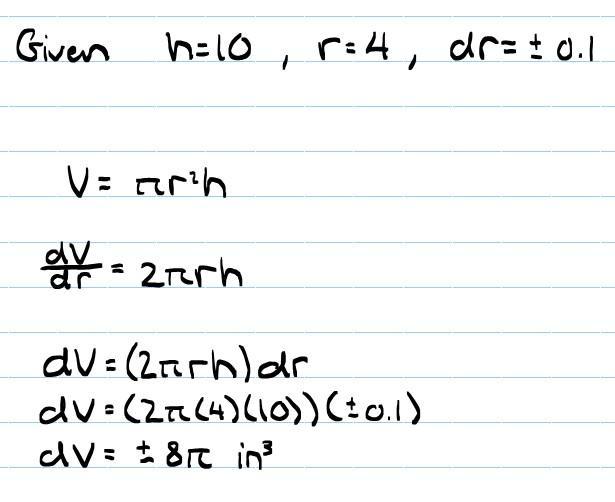 Given h=10 , r=4 , dr= ± 0.1
V= πr²h
dV/dr = 2πrh
dV=(2πrh)dr
dV=(2π(4)(10))(±0.1)
dV= ± 8π in³